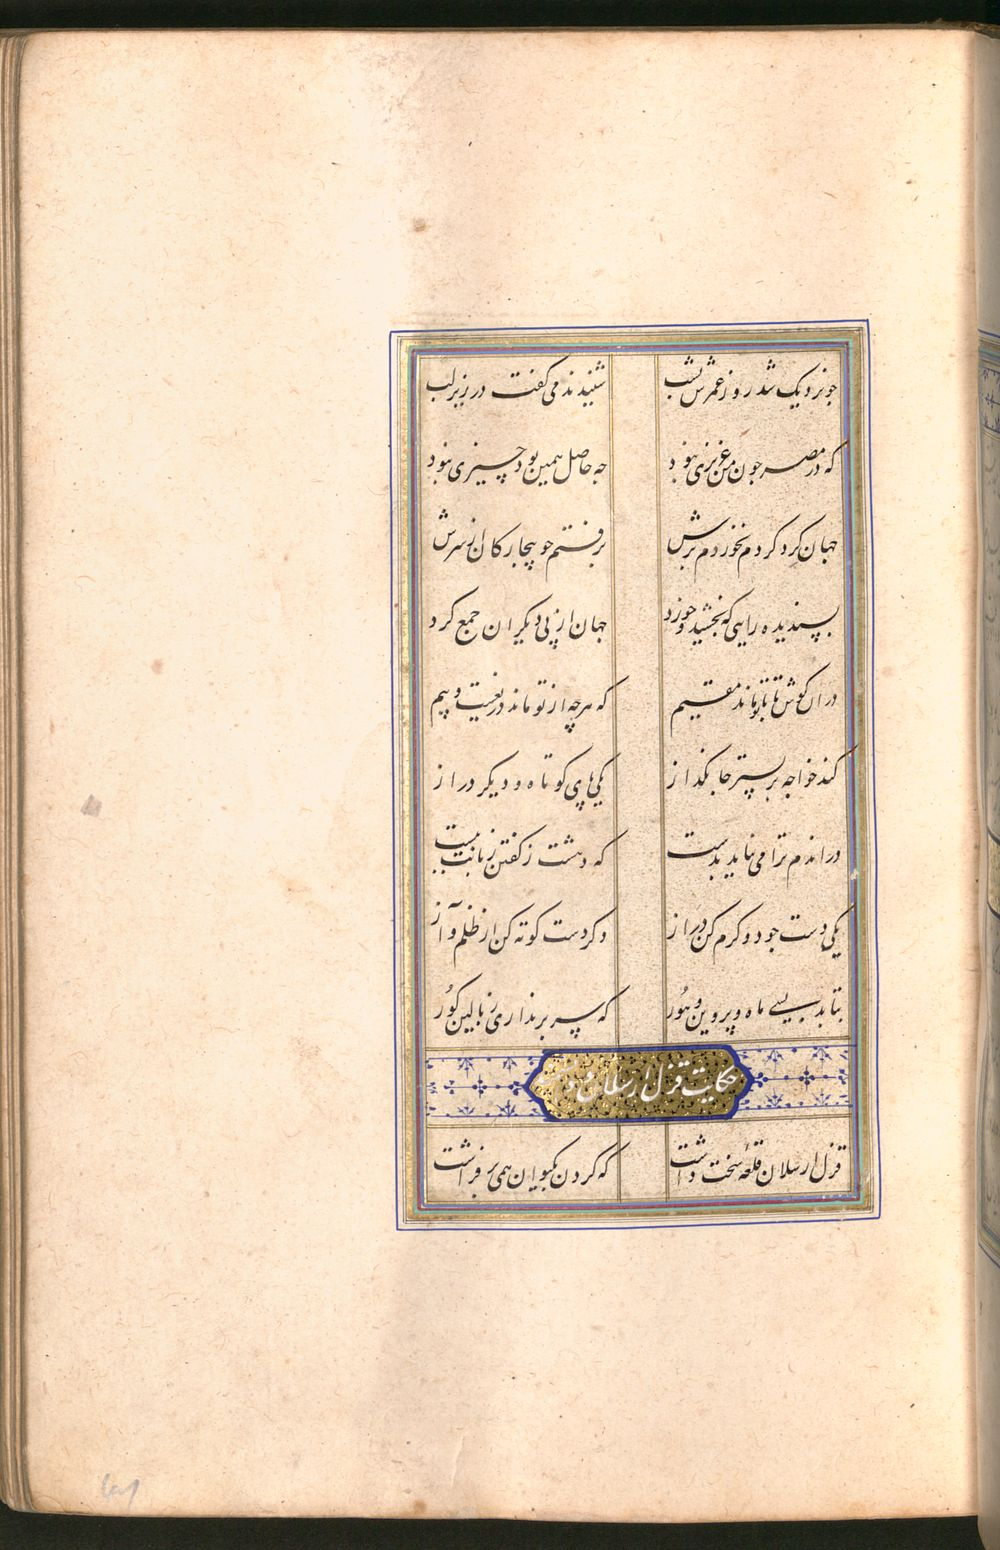 جو نزدیک شد روز عمرش بشب شنیدند می کفت در زیر لب
که در مصر جون من عزیزی نبود جه حاصل همین بود چیزی نبود
جهان کرد کردم نخوردم برش برفتم جو بیجارکان از سرش
پسندیده رایی که بخشید و خورد جهان از پی دیکران جمع کرد
در ان کوش تا با تو ماند مقیم که هرچه از تو ماند دریغست و بیم
کند خواجه بر بستر جانکداز یکی پای کوتاه و دیکر دراز
در اندم ترا می نماید بدست که دهشت زکفتن زبانت ببست
یکی دست جود و کرم کن دراز دکر دست کوته کن از ظلم و آز
بتابد بسی ماه و پروین و هور که سر برنداری ز بالین کور
حکایت قزل ارسلان و
قزل ارسلان قلعهٔ سخت داشت که کردن بکیوان همی بر فراشت